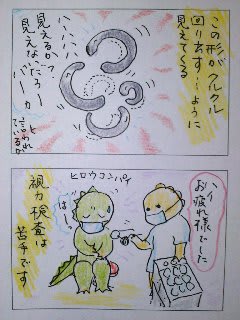 この形がクルクル
回り出す…ように
見えてくる
ハハハハハ
見えるか？
見えないだろー
バーカ
と
言われ
ているか
ヒロウコンパイ
ハイ
お疲れ様でした
はー
視力検査は
苦手です